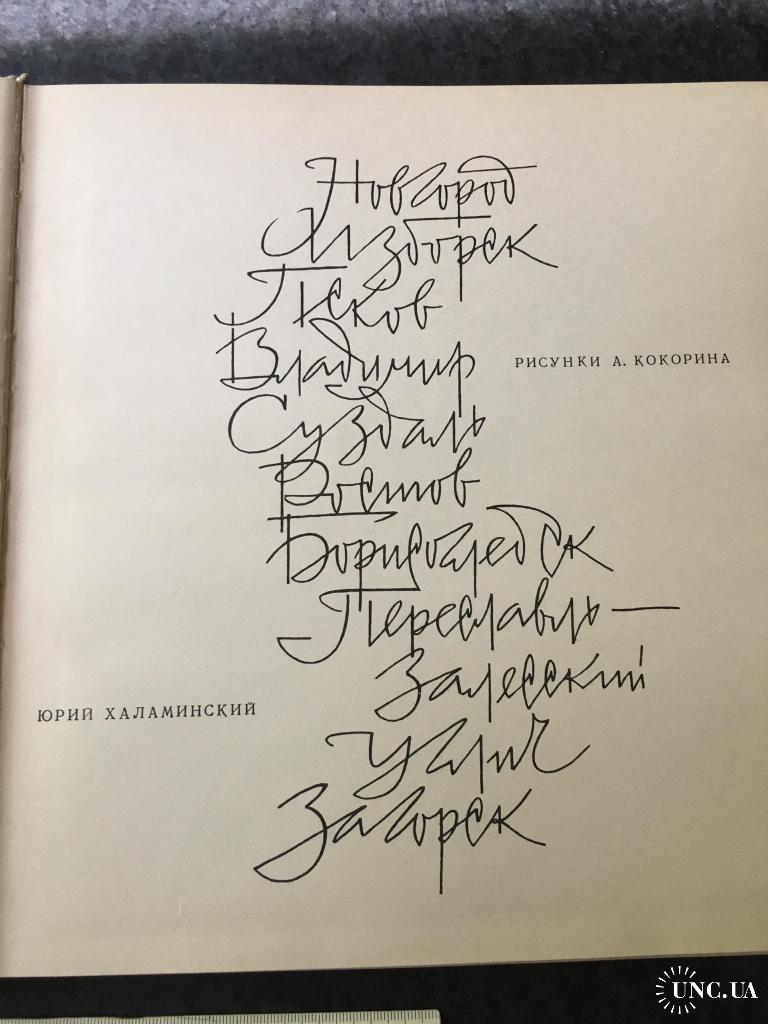 Новгород
Изборск
Псков
Владимир
РИСУНКИ А. КОКОРИНА
Суздаль
Ростов
Борисоглебск
Переславль—
Залесский
ЮРИЙ ХАЛАМИНСКИЙ
Углич
Загорск
UNC.UA